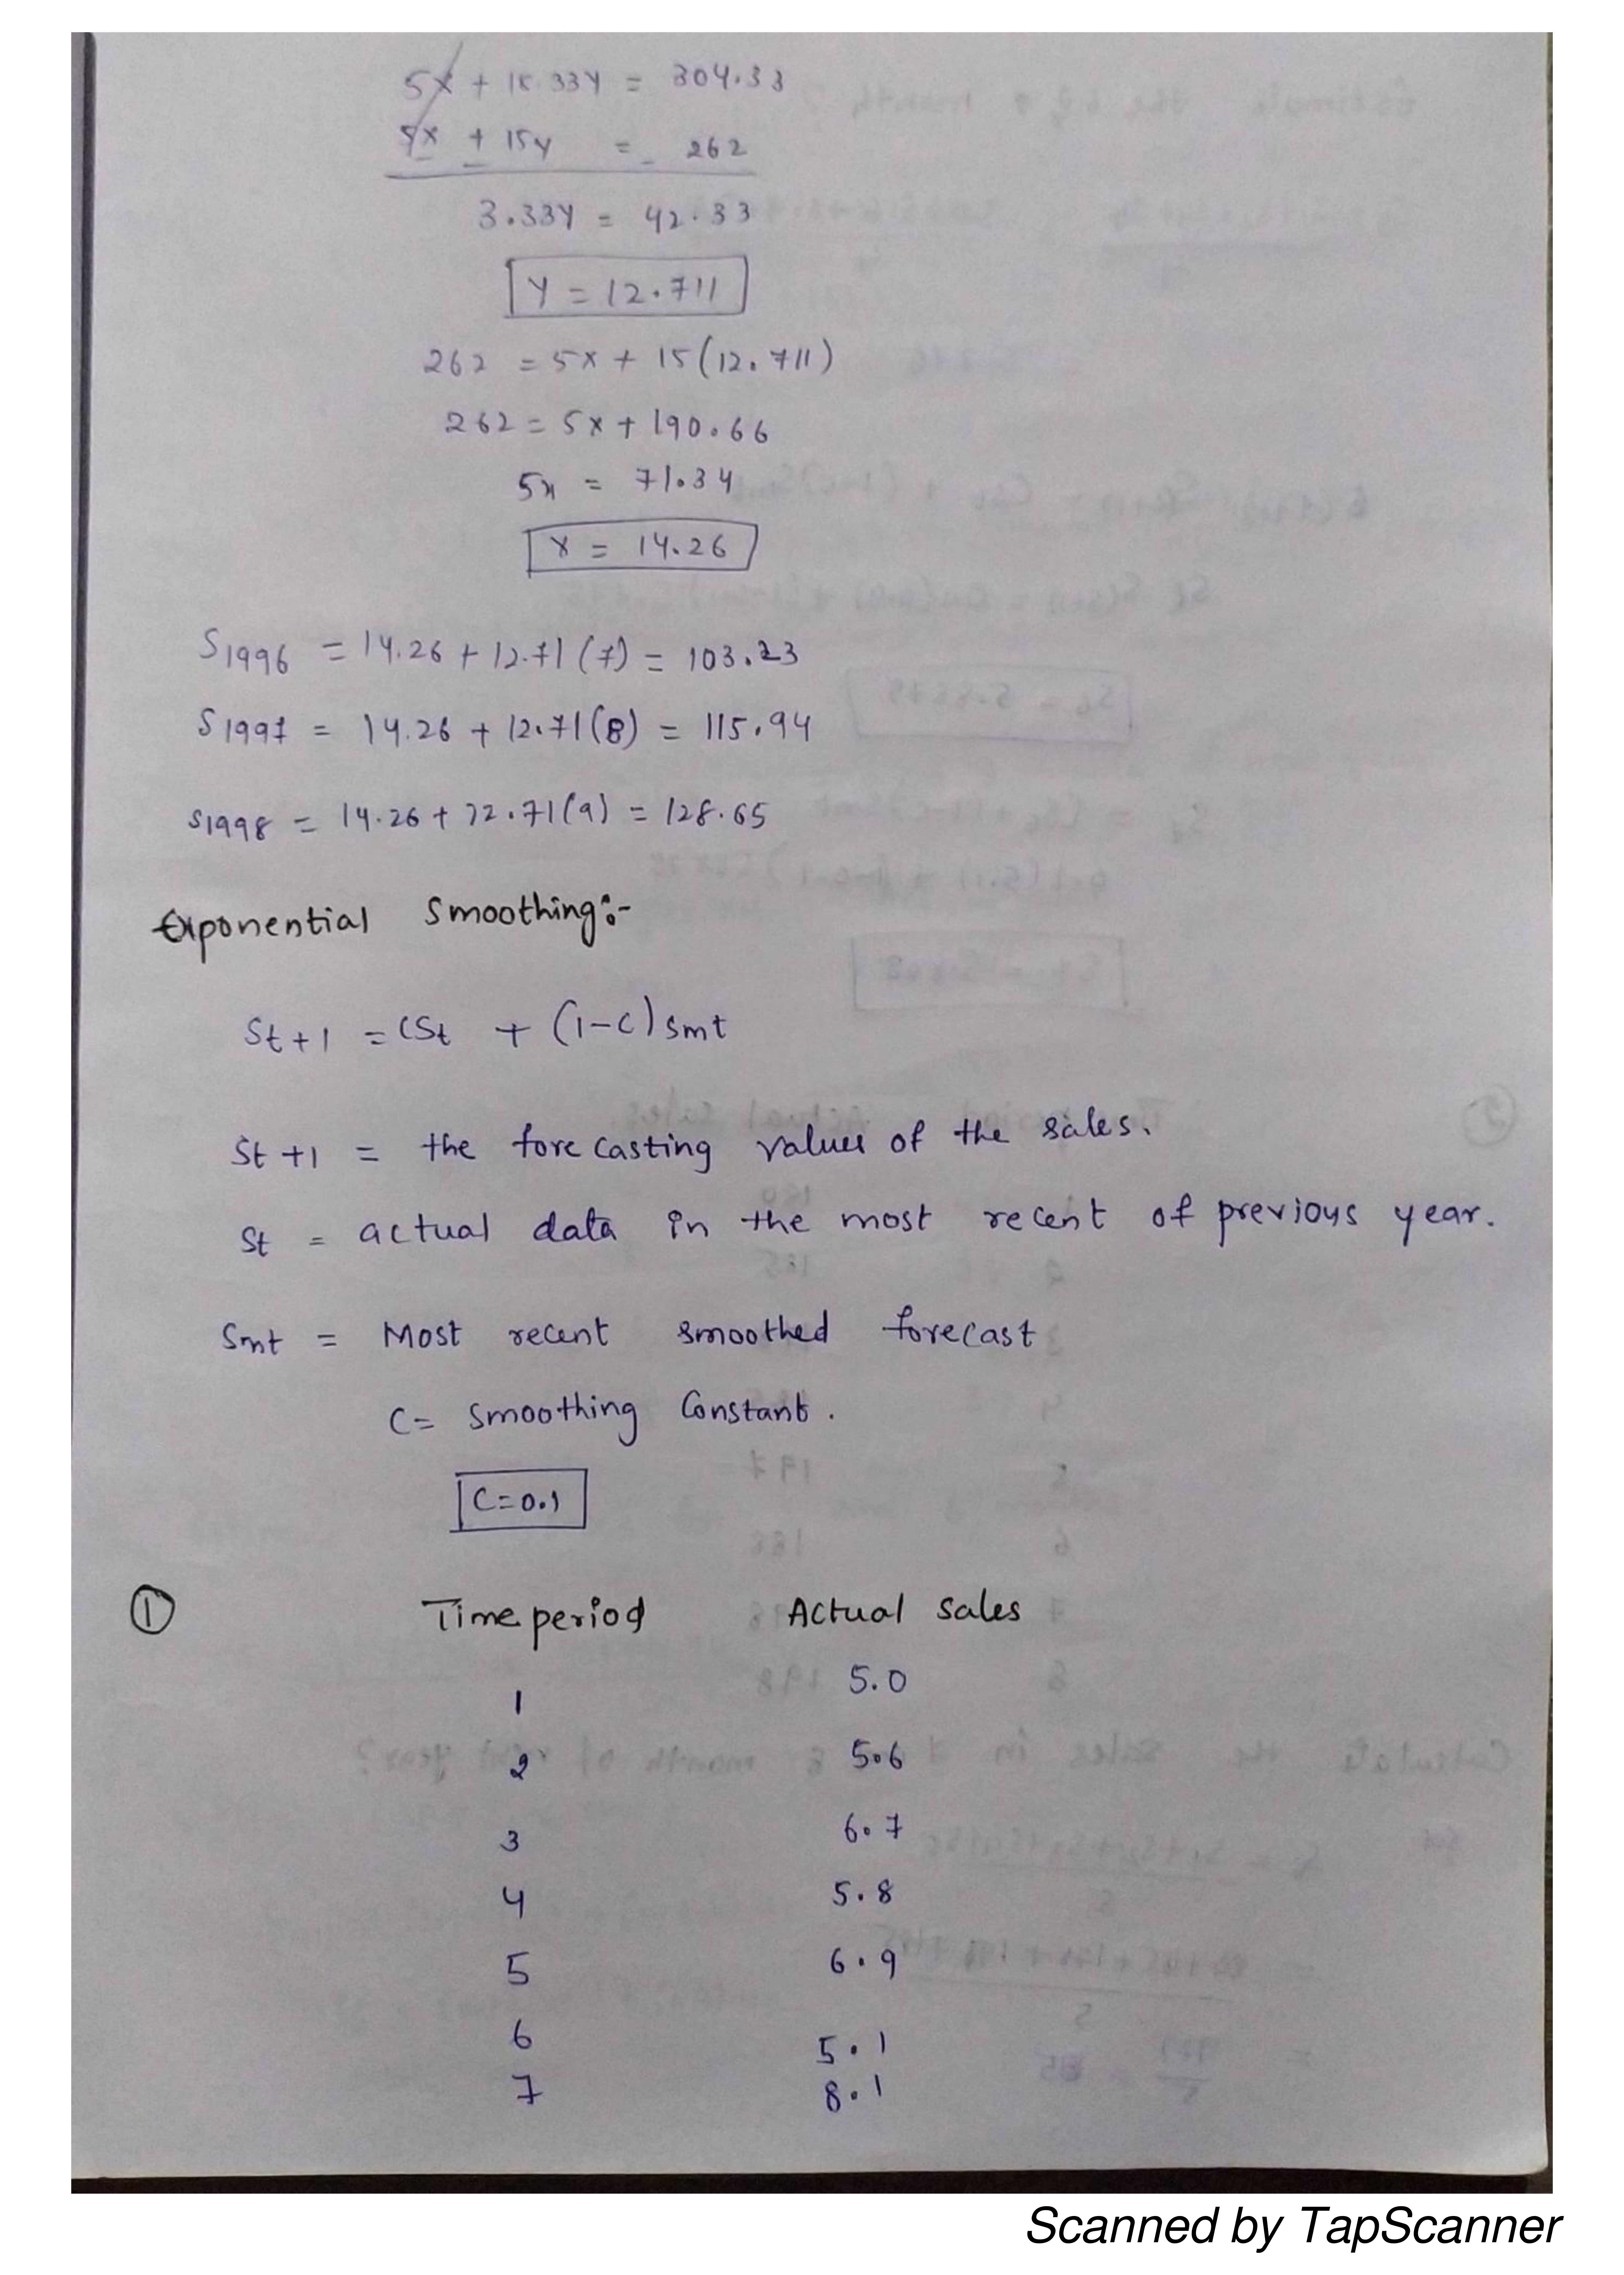 5x + 18.33y = 304.33
5x + 15y = 262
3.33y = 42.33
y = 12.711
262 = 5x + 15(12.711)
262 = 5x + 190.66
5x = 71.34
x = 14.26
S1996 = 14.26 + 12.71(7) = 103.23
S1997 = 14.26 + 12.71(8) = 115.94
S1998 = 14.26 + 12.71(9) = 128.65
Exponential Smoothing:-
St+1 = CSt + (1-C) Smt
St+1 = the forecasting values of the sales.
St = actual data in the most recent of previous year.
Smt = Most recent smoothed forecast
C = Smoothing Constant.
C=0.1
① Time period Actual sales
1 5.0
2 5.6
3 6.7
4 5.8
5 6.9
6 5.1
7 8.1
Scanned by TapScanner